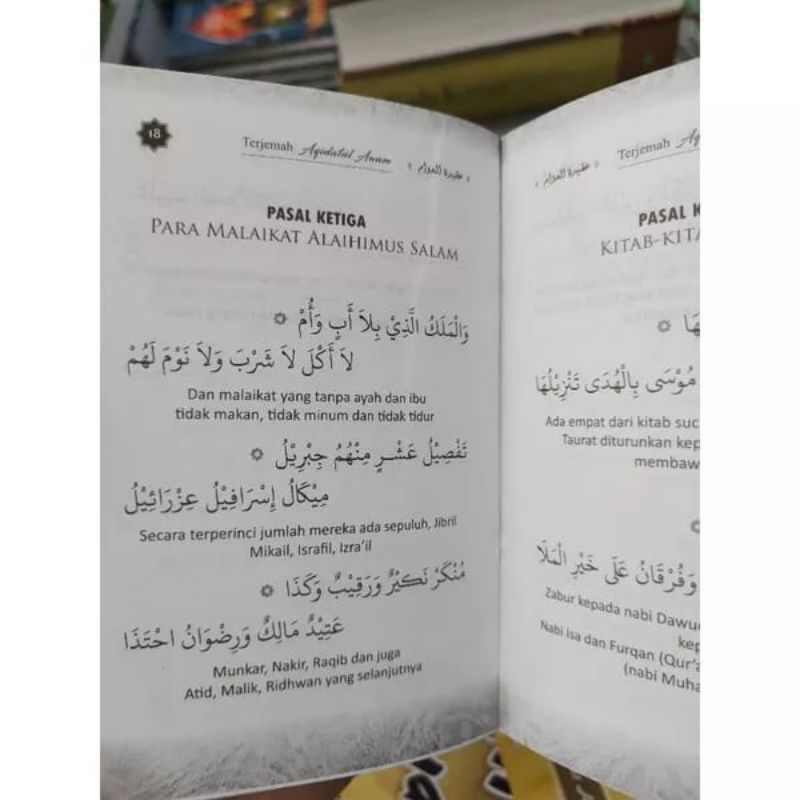 18
Terjemah Aqidatul Awam « عقيدة العوام »
PASAL KETIGA
PARA MALAIKAT ALAIHIMUS SALAM
وَالْمَلَكُ الَّذِيْ بِلاَ أَبٍ وَأُمْ ۞
لاَ أَكْلَ لاَ شَرْبَ وَلاَ نَوْمَ لَهُمْ
Dan malaikat yang tanpa ayah dan ibu
tidak makan, tidak minum dan tidak tidur
تَفْصِيْلُ عَشْرٍ مِنْهُمُ جِبْرِيْلُ ۞
مِيْكَالُ إِسْرَافِيْلُ عِزْرَائِيْلُ
Secara terperinci jumlah mereka ada sepuluh, Jibril
Mikail, Israfil, Izra'il
مُنْكَرْ نَكِيْرٌ وَرَقِيْبٌ وَكَذَا ۞
عَتِيْدٌ مَالِكٌ وَرِضْوَانُ احْتَذَا
Munkar, Nakir, Raqib dan juga
Atid, Malik, Ridhwan yang selanjutnya
« عقيدة العوام » Terjemah
PASAL K
KITAB-KITA
هَا ۞
مُوْسَى بِالْهُدَى تَنْزِيْلُهَا
Ada empat dari kitab suc
Taurat diturunkan kep
membaw
وَفُرْقَانُ عَلَى خَيْرِ الْمَلَا
Zabur kepada nabi Dawu
kep
Nabi Isa dan Furqan (Qur'a
(nabi Muha